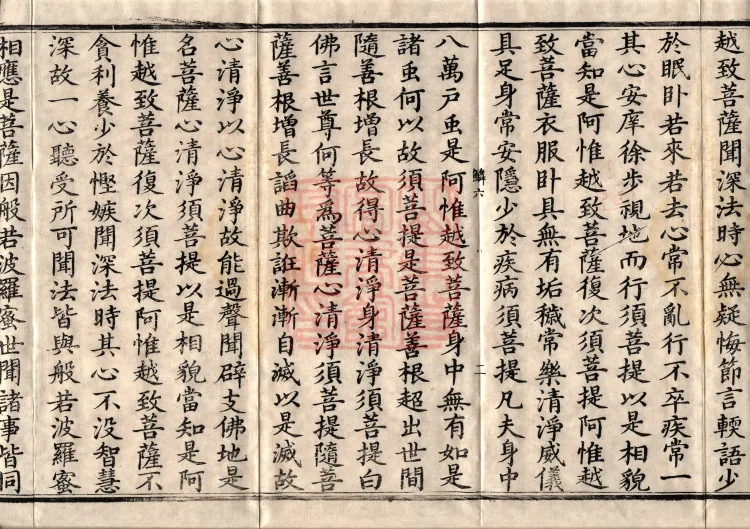 越致菩薩聞深法時心無疑悔節言輭語少
於眠卧若來若去心常不亂行不卒疾常一
其心安庠徐步視地而行須菩提以是相貌
當知是阿惟越致菩薩復次須菩提阿惟越
致菩薩衣服卧具無有垢穢常樂清淨威儀
具足身常安隱少於疾病須菩提凡夫身中
鱗六 二
八萬户虫是阿惟越致菩薩身中無有如是
諸虫何以故須菩提是菩薩善根超出世間
隨善根增長故得心清淨身清淨須菩提白
佛言世尊何等爲菩薩心清淨須菩提隨菩
薩善根增長謟曲欺誑漸漸自滅以是滅故
心清淨以心清淨故能過聲聞辟支佛地是
名菩薩心清淨須菩提以是相貌當知是阿
惟越致菩薩復次須菩提阿惟越致菩薩不
貪利養少於慳嫉聞深法時其心不没智慧
深故一心聽受所可聞法皆與般若波羅蜜
相應是菩薩因般若波羅蜜世間諸事皆同